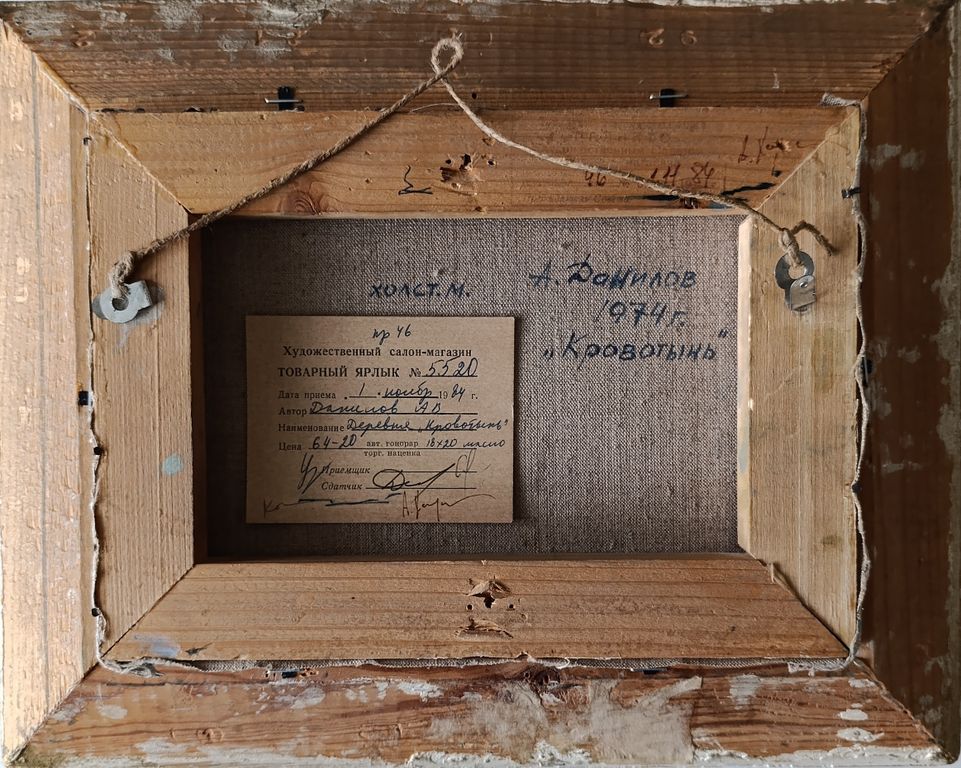 46
84
холст. м.
А. Данилов
1974 г.
„Кровотынь"
пр 46
Художественный салон-магазин
ТОВАРНЫЙ ЯРЛЫК № 5520
Дата приема 1 ноябр 1984 г.
Автор Данилов АВ
Наименование Деревня „Кровотынь"
Цена 64-20 авт. гонорар 18х20 масло
торг. наценка
Приемщик
Сдатчик